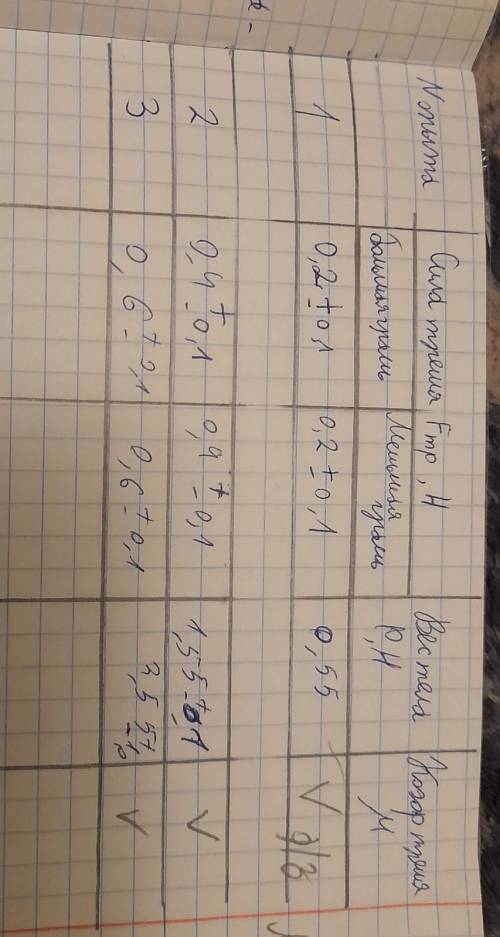 N опыта
Сила трения Fтр, Н
Большая грань
Меньшая грань
Вес тела P, Н
Коэф трения μ
1
0,2 ± 0,1
0,2 ± 0,1
0,55
V
д/з
2
0,4 ± 0,1
0,4 ± 0,1
1,55 ± 0,1
V
3
0,6 ± 0,1
0,6 ± 0,1
V